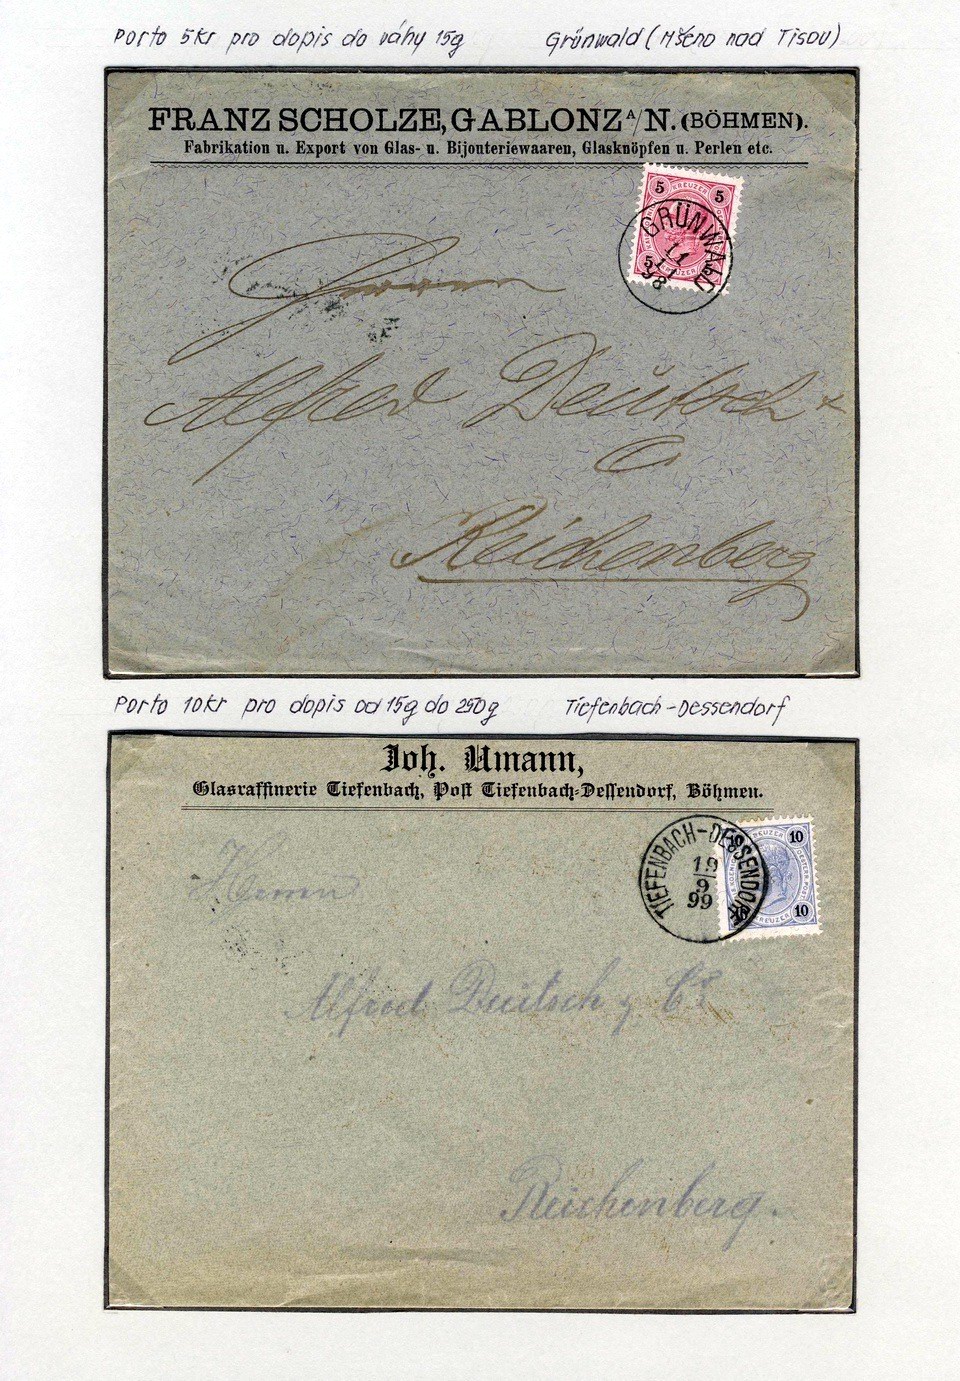 Porto 5kr pro dopis do váhy 15g
Grünwald (Mšeno nad Tisou)
FRANZ SCHOLZE, GABLONZ A/N. (BÖHMEN).
Fabrikation u. Export von Glas- u. Bijouteriewaaren, Glasknöpfen u. Perlen etc.
5 KREUZER 5
5 KREUZER
GRÜNWALD
11
11
98
Herren
Alfred Deutsch &
Co
Reichenberg
Porto 10kr pro dopis od 15g do 250g
Tiefenbach-Dessendorf
Joh. Umann,
Glasraffinerie Tiefenbach, Post Tiefenbach-Dessendorf, Böhmen.
TIEFENBACH-DESSENDORF
19
9
99
KREUZER 10
KREUZER 10
Herren
Alfred Deutsch & Co
Reichenberg.